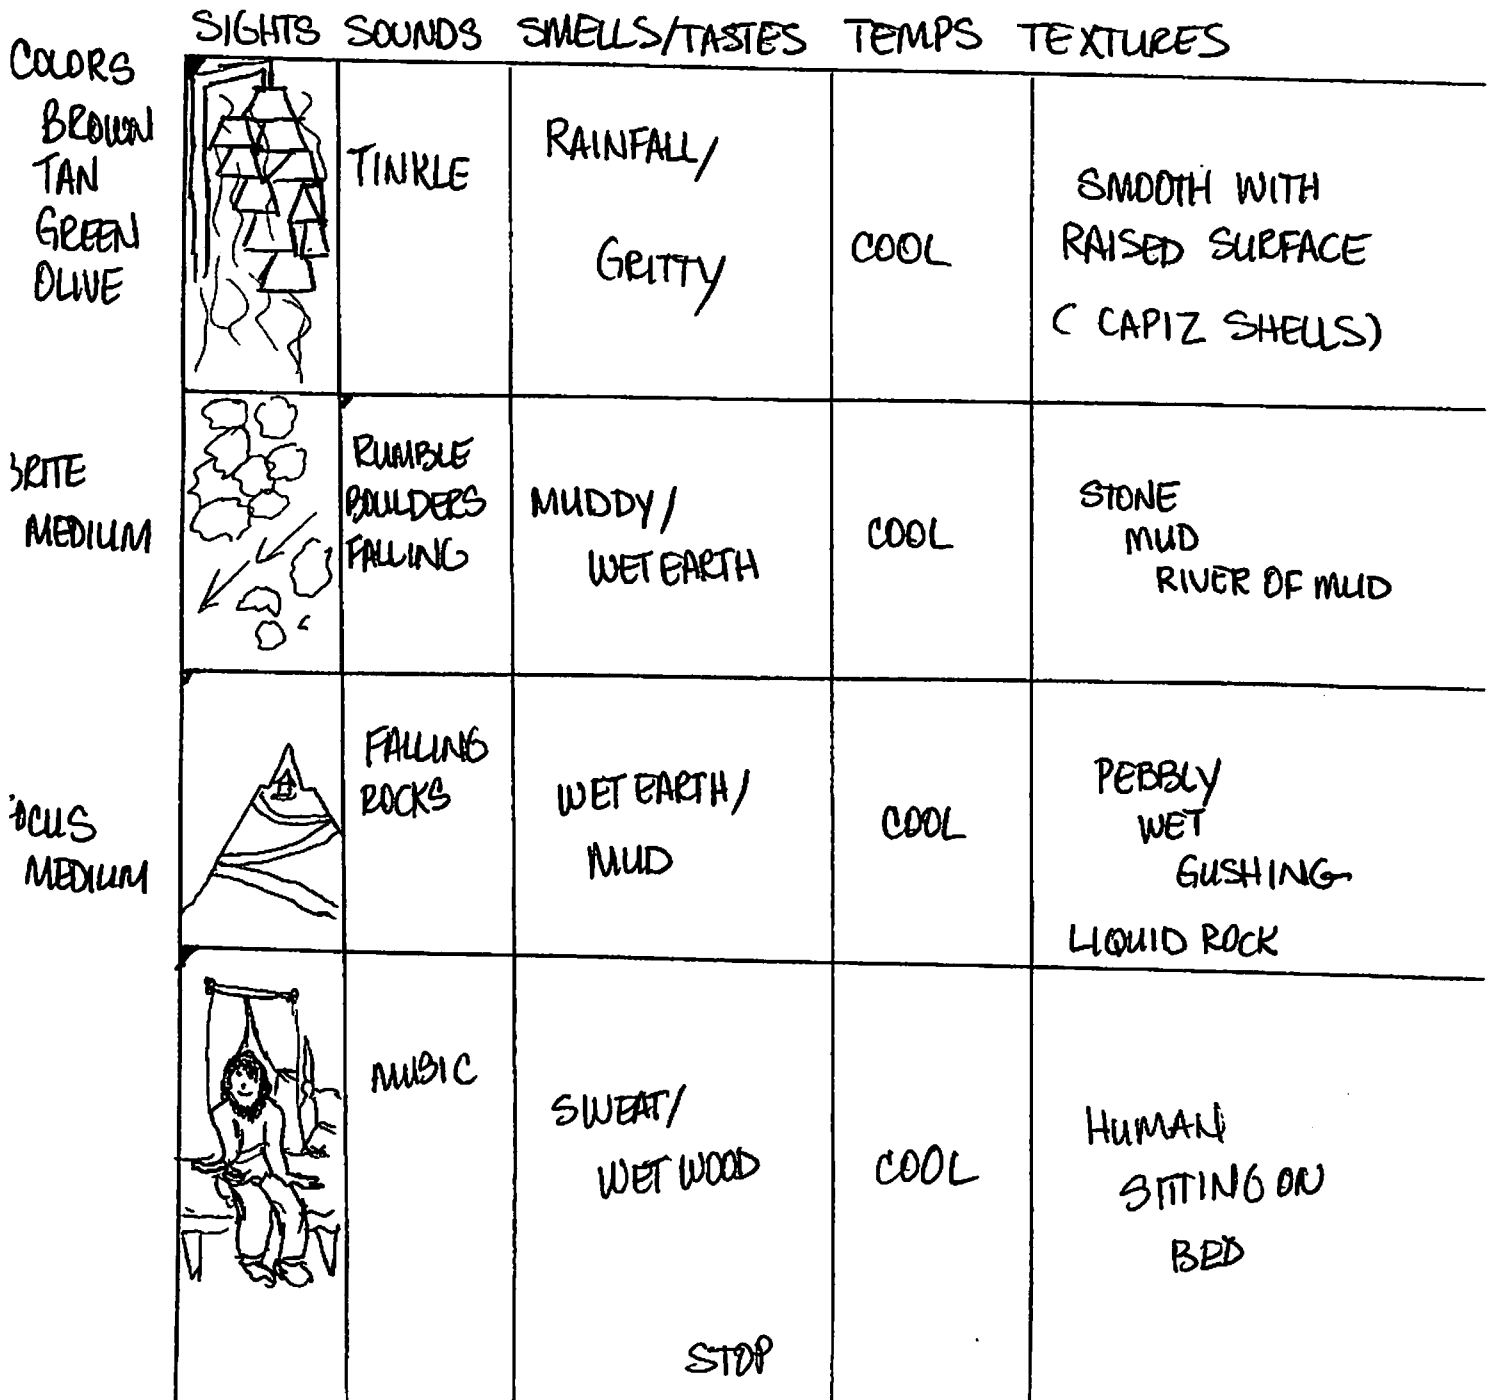 SIGHTS SOUNDS SMELLS/TASTES TEMPS TEXTURES
COLORS
BROWN
TAN
GREEN
OLIVE
TINKLE
RAINFALL/
GRITTY
COOL
SMOOTH WITH
RAISED SURFACE
( CAPIZ SHELLS)
BRITE
MEDIUM
RUMBLE
BOULDERS
FALLING
MUDDY/
WET EARTH
COOL
STONE
MUD
RIVER OF MUD
FOCUS
MEDIUM
FALLING
ROCKS
WET EARTH/
MUD
COOL
PEBBLY
WET
GUSHING
LIQUID ROCK
MUSIC
SWEAT/
WET WOOD
COOL
HUMAN
SITTING ON
BED
STOP